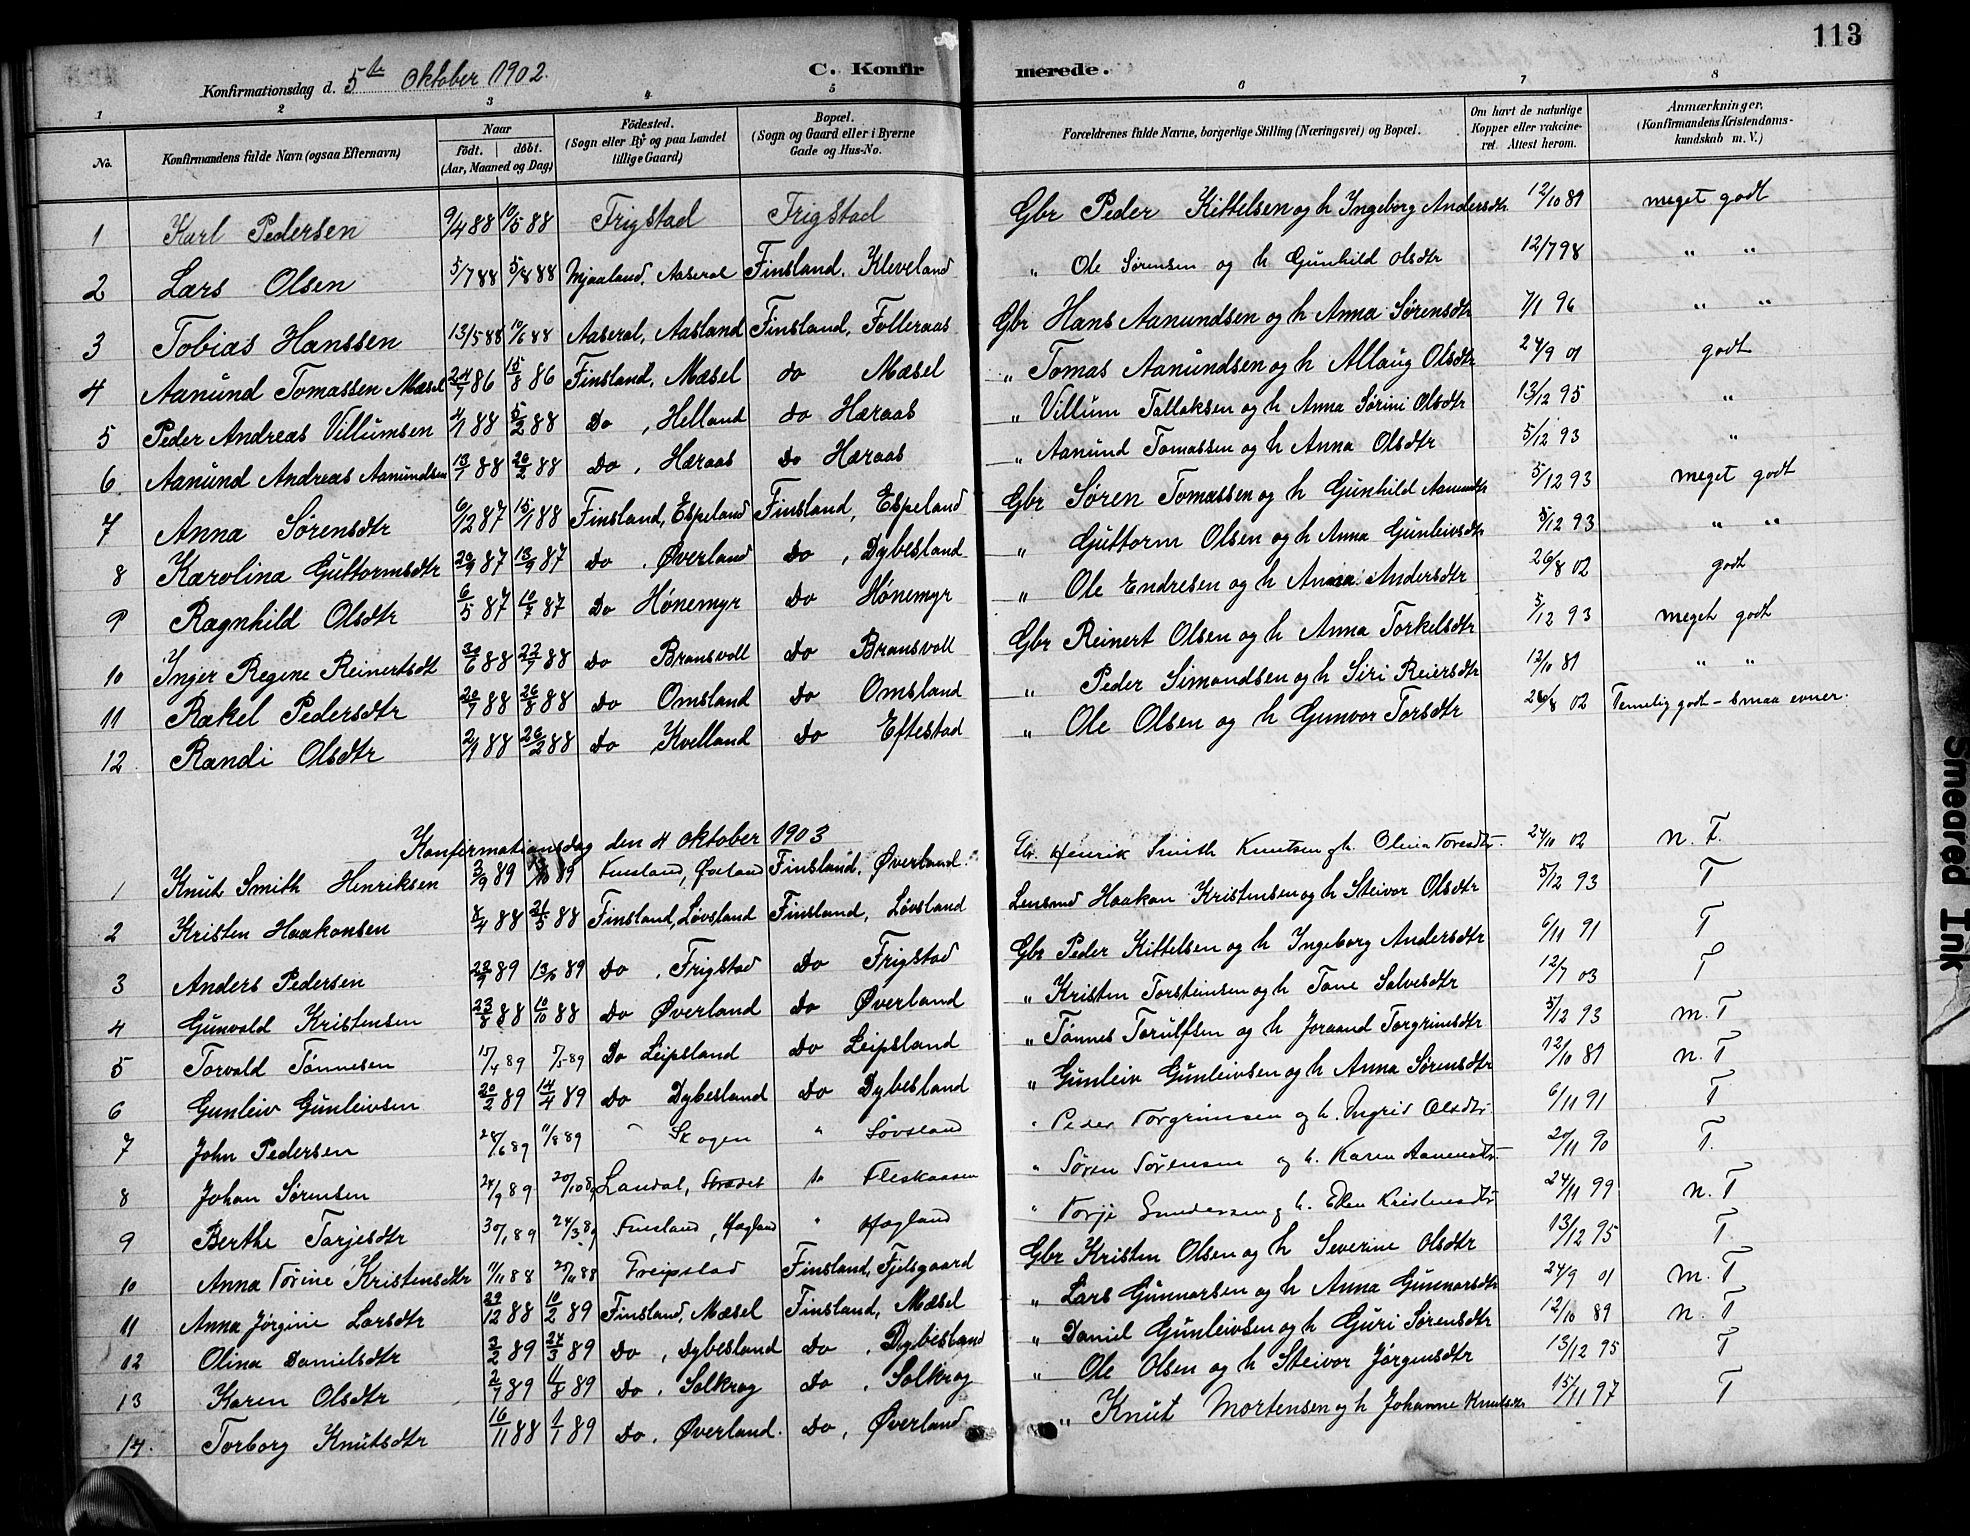 113
Konfirmationsdag d. 5te Oktober 1902.
C. Konfirmerede.
1 2 3 4 5 6 7 8
No. Konfirmandens fulde Navn (ogsaa Efternavn) Naar født. døbt. (Aar, Maaned og Dag) Födested. (Sogn eller By og paa Landet tillige Gaard) Bopæl. (Sogn og Gaard eller i Byerne Gade og Hus-No. Forældrenes fulde Navne, borgerlige Stilling (Næringsvei) og Bopæl. Om havt de naturlige Kopper eller vakcineret. Attest herom. Anmærkninger. (Konfirmandens Kristendomskundskab m. V.)
1 Karl Pedersen 9/4 88 10/5 88 Frigstad Frigstad Gbr Peder Kittelsen og h Ingeborg Andersdtr 12/10 89 meget godt
2 Lars Olsen 5/7 88 5/8 88 Mjaaland, Aaseral Finsland, Kleveland " Ole Sørensen og h Gunhild Olsdtr 12/7 98 " "
3 Tobias Hanssen 13/5 88 10/6 88 Aaseral, Aasland Finsland, Folleraas Gbr Hans Aanundsen og h Anna Sørensdtr 7/1 96 " "
4 Aanund Tomassen Mæsel 24/7 86 15/8 86 Finsland, Mæsel do Mæsel " Tomas Aanundsen og h Allaug Olsdtr 24/9 01 godt
5 Peder Andreas Villumsen 4/1 88 5/2 88 Do, Helland do Hæraas " Villum Tallaksen og h Anna Sørini Olsdtr 13/12 95 "
6 Aanund Andreas Aanundsen 13/1 88 20/2 88 Do, Hæraas Do Hæraas " Aanund Tomassen og h Anna Olsdtr 5/12 93 "
7 Anna Sørensdtr 6/12 87 15/1 88 Finsland, Espeland Finsland, Espeland Gbr Søren Tomassen og h Gunhild Aanundsdtr 5/12 93 meget godt
8 Karolina Guttormsdtr 20/9 87 13/9 87 Do, Øverland Do, Dybesland " Guttorm Olsen og h Anna Gunleivsdtr 5/12 93 " "
9 Ragnhild Olsdtr 6/5 87 10/7 87 Do Hønemyr Do Hønemyr " Ole Endresen og h Anna Andersdtr 26/8 02 godt
10 Inger Regine Reinertsdt 30/6 88 22/7 88 Do Bransvoll Do Bransvoll Gbr Reinert Olsen og h Anna Torkelsdtr 5/12 93 meget godt
11 Rakel Pedersdtr 20/7 88 26/8 88 Do Omsland Do Omsland " Peder Simondsen og h Siri Reiersdtr 12/10 89 " "
12. Randi Olsdtr 2/1 88 26/2 88 Do Kvelland Do Eftestad " Ole Olsen og h Gunvor Torsdtr 26/8 02 Temelig godt - smaa evner.
Konfirmationsdag den 4 Oktober 1903
1 Knut Smith Henriksen 3/9 89 /10 89 Finsland, Øverland Finsland, Øverland. Henrik Smith Knutsen h. Olina 24/10 02 n. T.
2 Kristen Haakonsen 8/4 88 21/5 88 Finsland, Løvsland Finsland, Løvsland Lensmd Haakon Kristensen og h Steivor Olsdtr 5/12 93 T
3 Anders Pedersen 22/9 89 13/10 89 Do, Frigstad Do Frigstad Gbr Peder Kittelsen og h Ingeborg Andersdtr 6/11 91 T
4 Gunvald Kristensen 23/8 88 10/10 88 Do Øverland Do Øverland " Kristen Torsteinsen og h Tone Salvesdtr 12/7 03 T
5 Torvald Tønnesen 15/4 89 5/5 89 Do Leipsland Do Leipsland " Tønnes Torulfsen og h Joraand Torgrimsdtr 5/12 93 m. T
6 Gunleiv Gunleivsen 20/2 89 14/4 89 Do Dybesland Do Dybesland " Gunleiv Gunleivsen og h Anna Sørensdtr 12/10 89 n. T
7 John Pedersen 28/6 89 11/8 89 " Skogen " Løvsland " Peder Torgrimsen og h. Ingrid Olsdtr 6/11 91 T
8 Johan Sørensen 24/9 89 20/10 89 Landal, Do Fleskaasen " Søren Sørensen og h. Karen 20/11 90 T.
9 Berthe Tarjesdtr 30/1 89 24/3 89 Finsland, Hagland " Hagland " Torje Gundersen h. Ellen Kristensdtr 24/11 99 n. T
10 Anna Tørine Kristensdtr 11/11 88 27/11 88 Greipstad Finsland, Fjelsgaard Gbr Kristen Olsen og h Severine Olsdtr 13/12 95 T
11 Anna Jørgine Larsdtr 22/12 88 10/2 89 Finsland, Mæsel Finsland, Mæsel " Lars Gunnarsen og h Anna Gunnarsdtr 24/9 01 m. T
12 Olina Danielsdtr 3/2 89 24/3 89 Do, Dybesland Do, Dybesland " Daniel Gunleivsen og h Guri Sørensdtr 12/10 89 n. T
13 Karen Olsdtr 2/7 89 4/8 89 Do, Solkrog Do, Solkrog " Ole Olsen og h Steivor Jørgensdtr 13/12 95 T
14. Torborg Knutsdtr 16/11 88 1/1 89 Do, Øverland. Do, Øverland " Knut Mortensen og h Johanne Knutsdtr 15/11 97 T
Smeared Ink